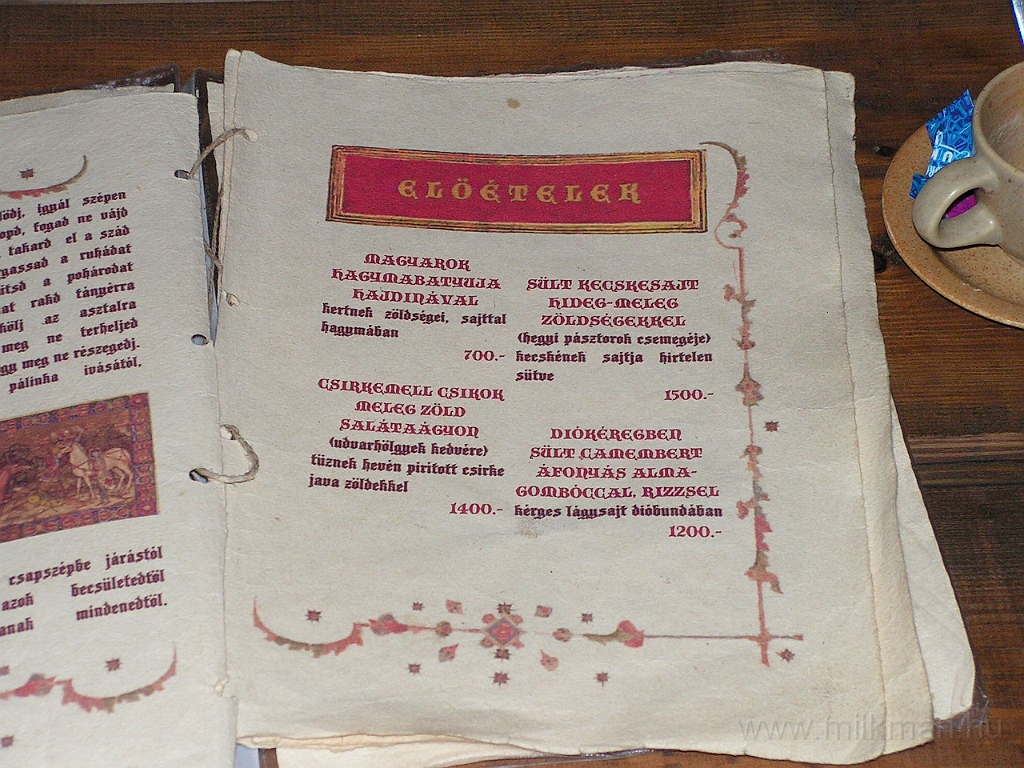 lődj, igyál szépen
opd, fogad ne vájd
takard el a szád
gassad a ruhádat
ítsd a pohárodat
at rakd tányérra
kölj az asztalra
meg ne terheljed
gy meg ne részegedj.
pálinka ivásától.
csapszépbe járástól
azok becsületedtől
anak mindenedtől.
ELŐÉTELEK
MAGYAROK
HAGYMABATYUJA
HAJDINÁVAL
kertnek zöldségei, sajttal
hagymában
700.-
CSIRKEMELL CSIKOK
MELEG ZÖLD
SALÁTAÁGYON
(udvarhölgyek kedvére)
tűznek hevén pirított csirke
java zöldekkel
1400.-
SÜLT KECSKESAJT
HIDEG-MELEG
ZÖLDSÉGEKKEL
(hegyi pásztorok csemegéje)
kecskének sajtja hirtelen
sütve
1500.-
DIÓKÉREGBEN
SÜLT CAMEMBERT
ÁFONYÁS ALMA-
GOMBÓCCAL, RIZZSEL
kérges lágysajt dióbundában
1200.-
www.milkman.hu